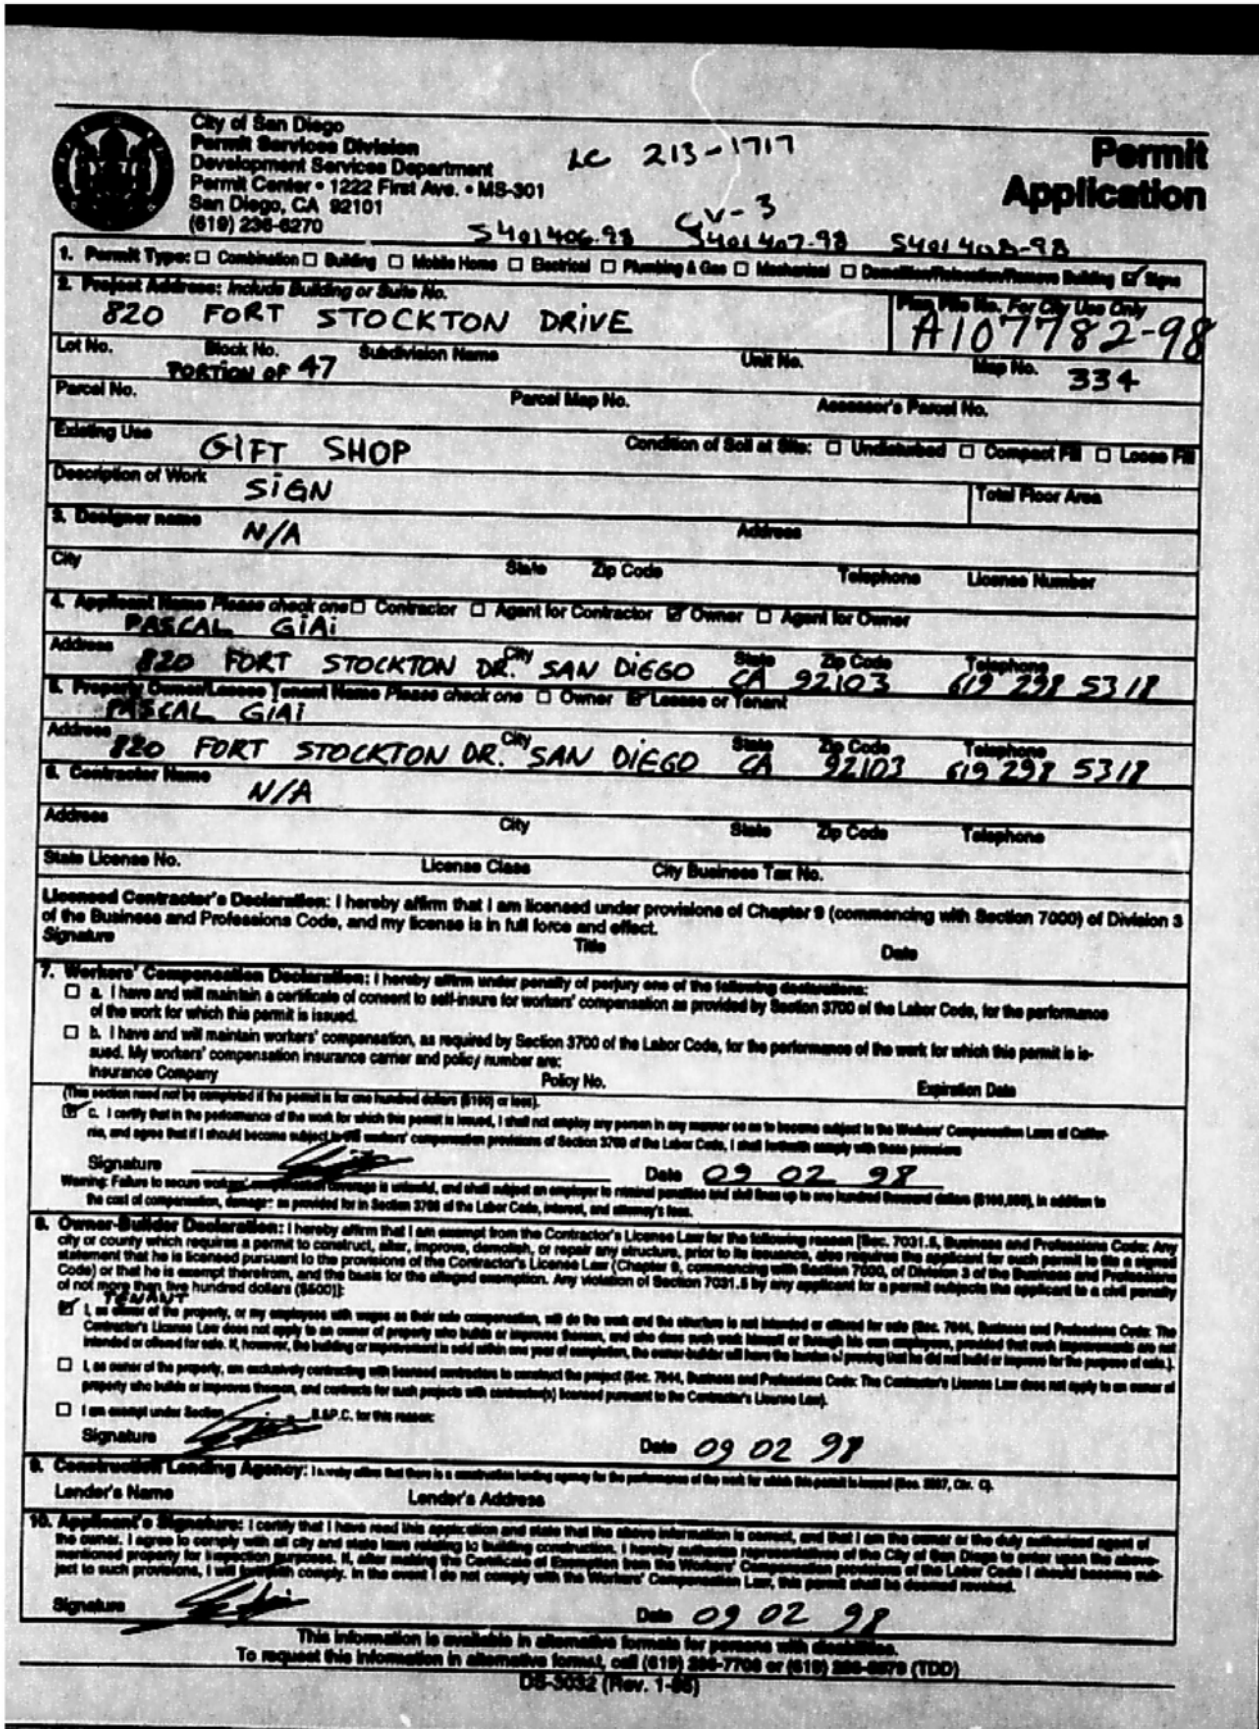 City of San Diego
Permit Services Division
Development Services Department
Permit Center • 1222 First Ave. • MS-301
San Diego, CA 92101
(619) 236-6270
LC 213-1717
CV-3
Permit
Application
S401406-98 S401407-98 S401408-98
1. Permit Type: ☐ Combination ☐ Building ☐ Mobile Home ☐ Electrical ☐ Plumbing & Gas ☐ Mechanical ☐ Demolition/Relocation/Remove Building ☑ Signs
2. Project Address: Include Building or Suite No.
820 FORT STOCKTON DRIVE
Plan File No. For City Use Only
A107782-98
Lot No. Block No. Subdivision Name Unit No. Map No.
PORTION OF 47 334
Parcel No. Parcel Map No. Assessor's Parcel No.
Existing Use GIFT SHOP Condition of Soil at Site: ☐ Undisturbed ☐ Compact Fill ☐ Loose Fill
Description of Work SIGN Total Floor Area
3. Designer name N/A Address
City State Zip Code Telephone License Number
4. Applicant Name Please check one ☐ Contractor ☐ Agent for Contractor ☑ Owner ☐ Agent for Owner
PASCAL GIAI
Address City State Zip Code Telephone
820 FORT STOCKTON DR. SAN DIEGO CA 92103 619 298 5318
5. Property Owner/Lessee Tenant Name Please check one ☐ Owner ☑ Lessee or Tenant
PASCAL GIAI
Address City State Zip Code Telephone
820 FORT STOCKTON DR. SAN DIEGO CA 92103 619 298 5318
6. Contractor Name
N/A
Address City State Zip Code Telephone
State License No. License Class City Business Tax No.
Licensed Contractor's Declaration: I hereby affirm that I am licensed under provisions of Chapter 9 (commencing with Section 7000) of Division 3
of the Business and Professions Code, and my license is in full force and effect.
Signature Title Date
7. Workers' Compensation Declaration: I hereby affirm under penalty of perjury one of the following declarations:
☐ a. I have and will maintain a certificate of consent to self-insure for workers' compensation as provided by Section 3700 of the Labor Code, for the performance
of the work for which this permit is issued.
☐ b. I have and will maintain workers' compensation, as required by Section 3700 of the Labor Code, for the performance of the work for which this permit is is-
sued. My workers' compensation insurance carrier and policy number are:
Insurance Company Policy No. Expiration Date
(This section need not be completed if the permit is for one hundred dollars ($100) or less).
☑ c. I certify that in the performance of the work for which this permit is issued, I shall not employ any person in any manner so as to become subject to the Workers' Compensation Laws of Califor-
nia, and agree that if I should become subject to the workers' compensation provisions of Section 3700 of the Labor Code, I shall forthwith comply with those provisions
Signature Date 09 02 98
Warning: Failure to secure workers' compensation coverage is unlawful, and shall subject an employer to criminal penalties and civil fines up to one hundred thousand dollars ($100,000), in addition to
the cost of compensation, damages as provided for in Section 3706 of the Labor Code, interest, and attorney's fees.
8. Owner-Builder Declaration: I hereby affirm that I am exempt from the Contractor's License Law for the following reason [Sec. 7031.5, Business and Professions Code: Any
city or county which requires a permit to construct, alter, improve, demolish, or repair any structure, prior to its issuance, also requires the applicant for such permit to file a signed
statement that he is licensed pursuant to the provisions of the Contractor's License Law (Chapter 9, commencing with Section 7000, of Division 3 of the Business and Professions
Code) or that he is exempt therefrom, and the basis for the alleged exemption. Any violation of Section 7031.5 by any applicant for a permit subjects the applicant to a civil penalty
of not more than five hundred dollars ($500)]:
TENANT
☑ I, as owner of the property, or my employees with wages as their sole compensation, will do the work and the structure is not intended or offered for sale (Sec. 7044, Business and Professions Code: The
Contractor's License Law does not apply to an owner of property who builds or improves thereon, and who does such work himself or through his own employees, provided that such improvements are not
intended or offered for sale. If, however, the building or improvement is sold within one year of completion, the owner-builder will have the burden of proving that he did not build or improve for the purpose of sale.).
☐ I, as owner of the property, am exclusively contracting with licensed contractors to construct the project (Sec. 7044, Business and Professions Code: The Contractor's License Law does not apply to an owner of
property who builds or improves thereon, and contracts for such projects with contractor(s) licensed pursuant to the Contractor's License Law).
☐ I am exempt under Section B.&P.C. for this reason:
Signature Date 09 02 98
9. Construction Lending Agency: I hereby affirm that there is a construction lending agency for the performance of the work for which this permit is issued (Sec. 3097, Civ. C).
Lender's Name Lender's Address
10. Applicant's Signature: I certify that I have read this application and state that the above information is correct, and that I am the owner or the duly authorized agent of
the owner. I agree to comply with all city and state laws relating to building construction. I hereby authorize representatives of the City of San Diego to enter upon the above-
mentioned property for inspection purposes. If, after making the Certificate of Exemption from the Workers' Compensation provisions of the Labor Code I should become sub-
ject to such provisions, I will forthwith comply. In the event I do not comply with the Workers' Compensation Law, this permit shall be deemed revoked.
Signature Date 09 02 98
This information is available in alternative formats for persons with disabilities.
To request this information in alternative format, call (619) or (619) (TDD)
DS-3032 (Rev. 1-)